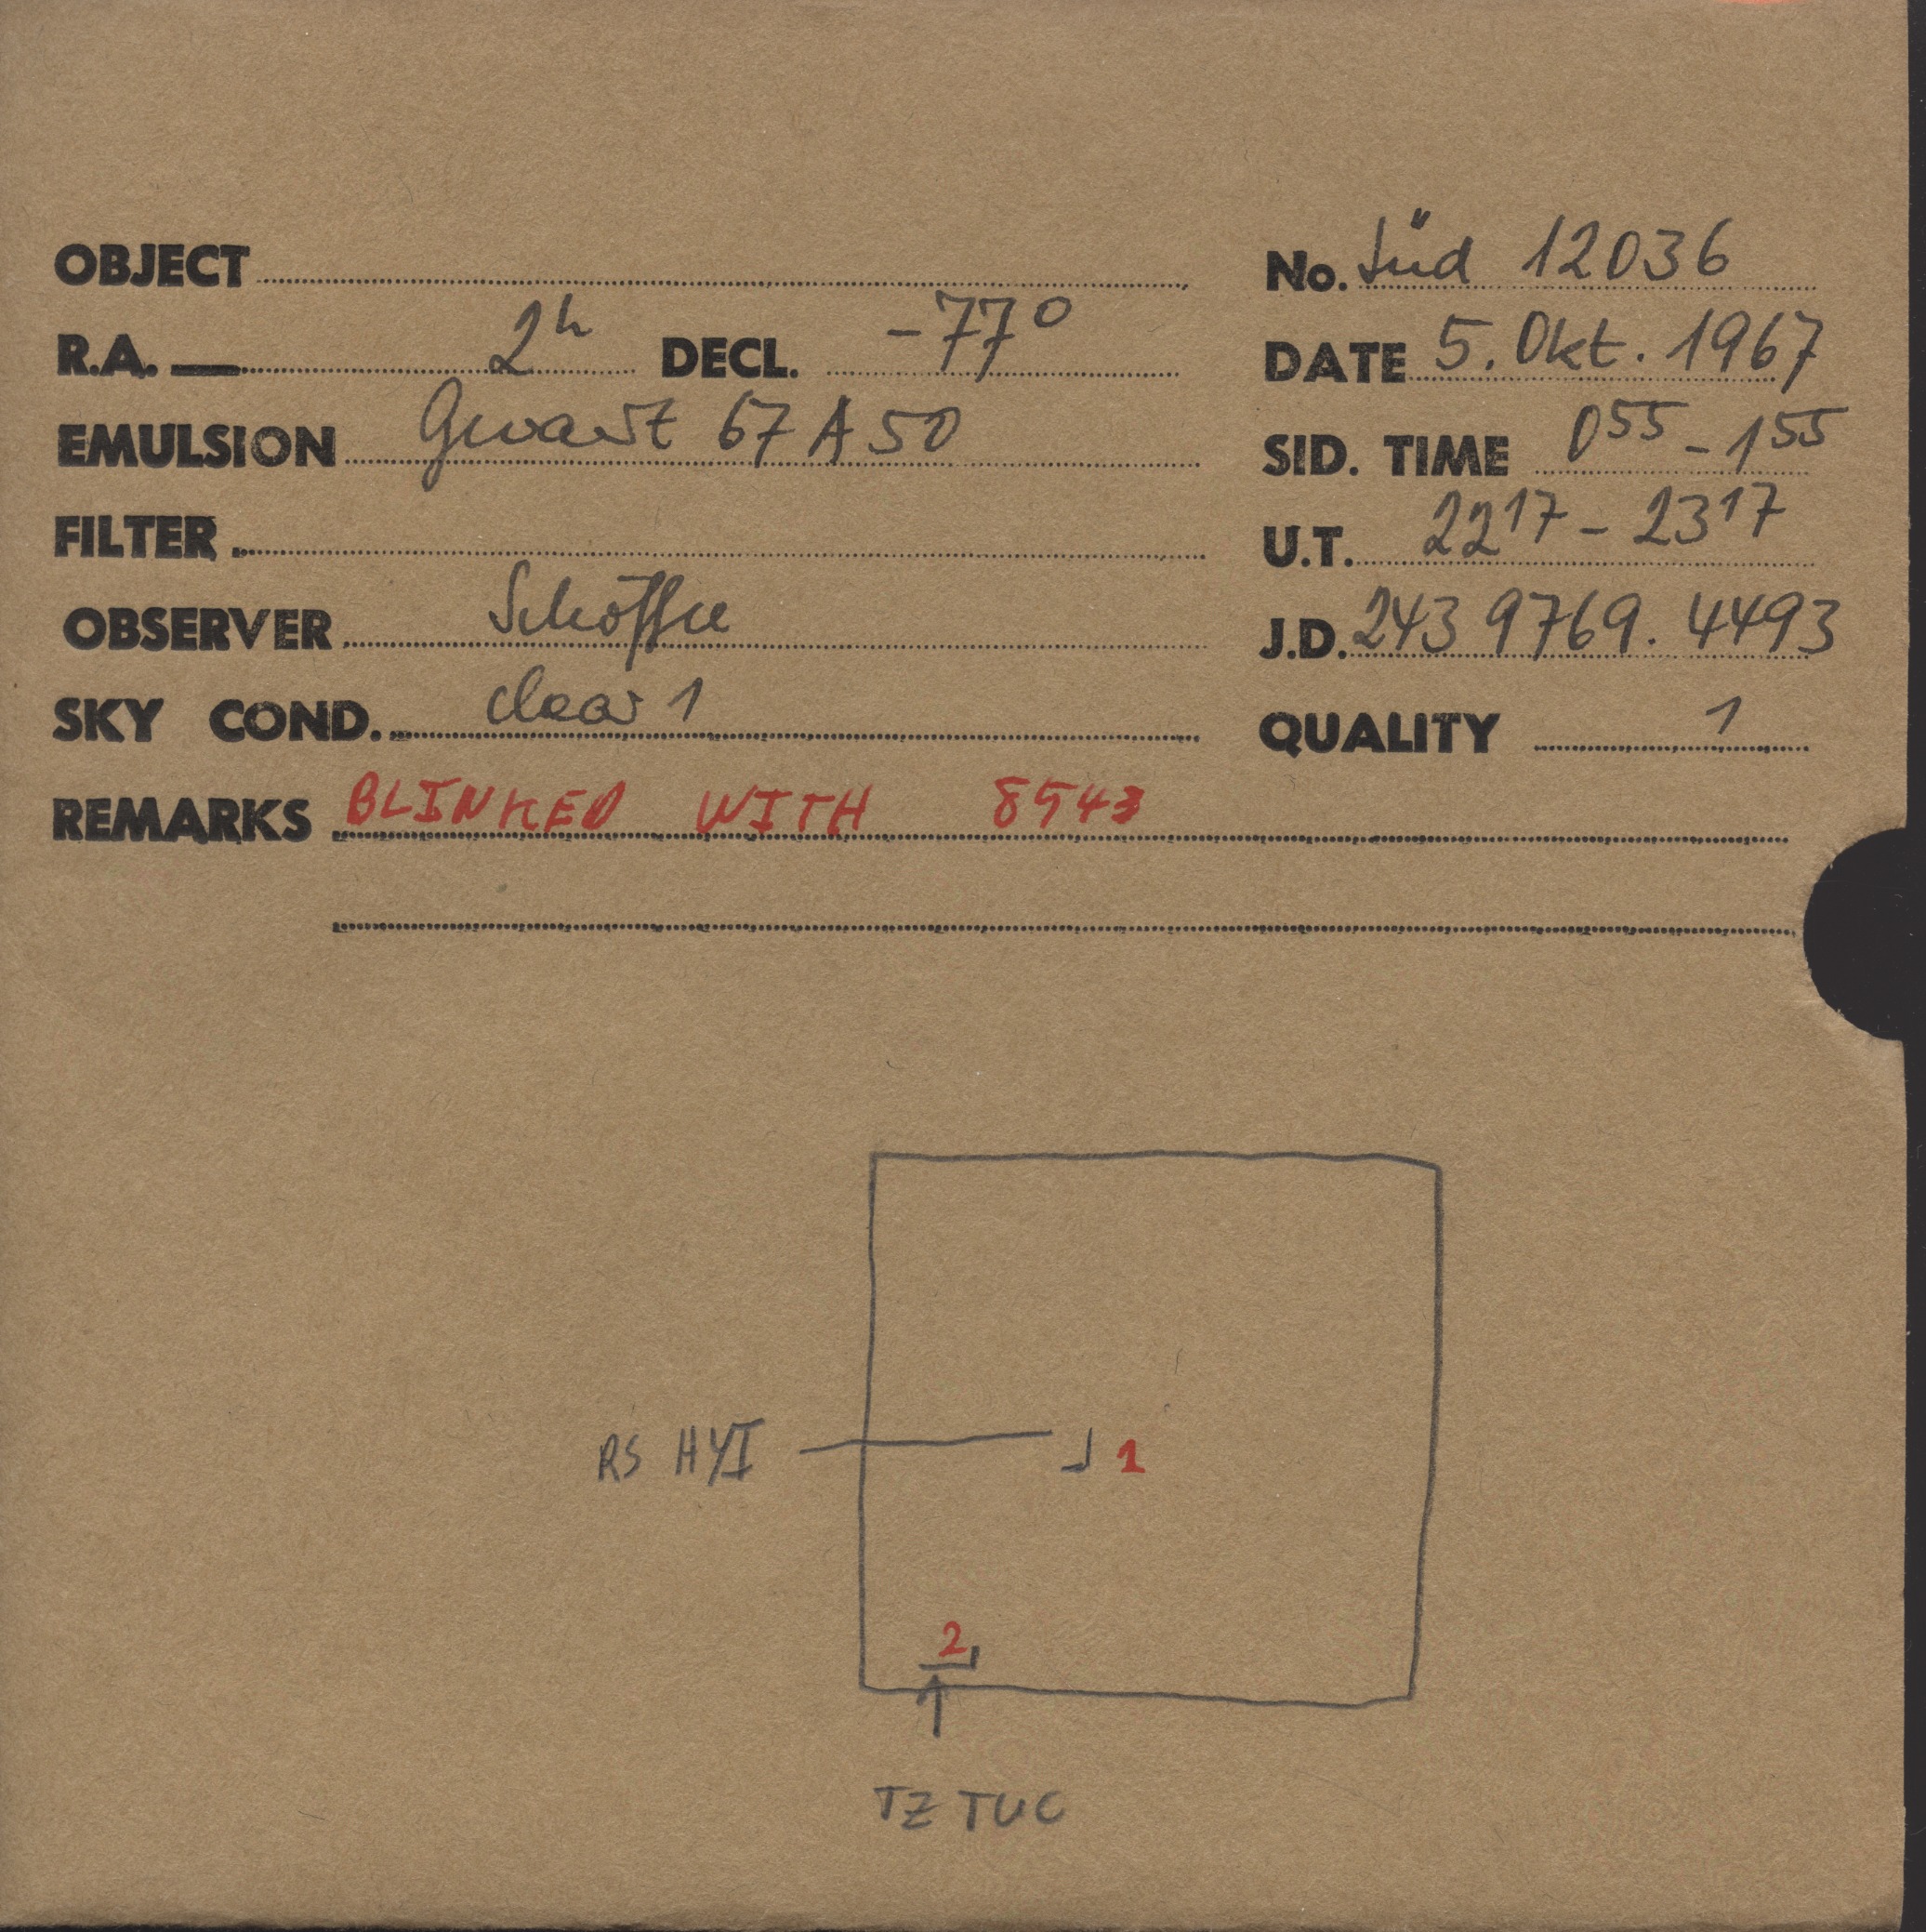 OBJECT
No. Süd 12036
R.A. 2h DECL. -77°
DATE 5. Okt. 1967
EMULSION Gevaert 67 A 50
SID. TIME 0 55 - 1 55
FILTER
U.T. 22 17 - 23 17
OBSERVER Schöffel
J.D. 243 9769.4493
SKY COND. clear 1
QUALITY 1
REMARKS BLINKED WITH 8543
RS HYI 1
2
TZ TUC